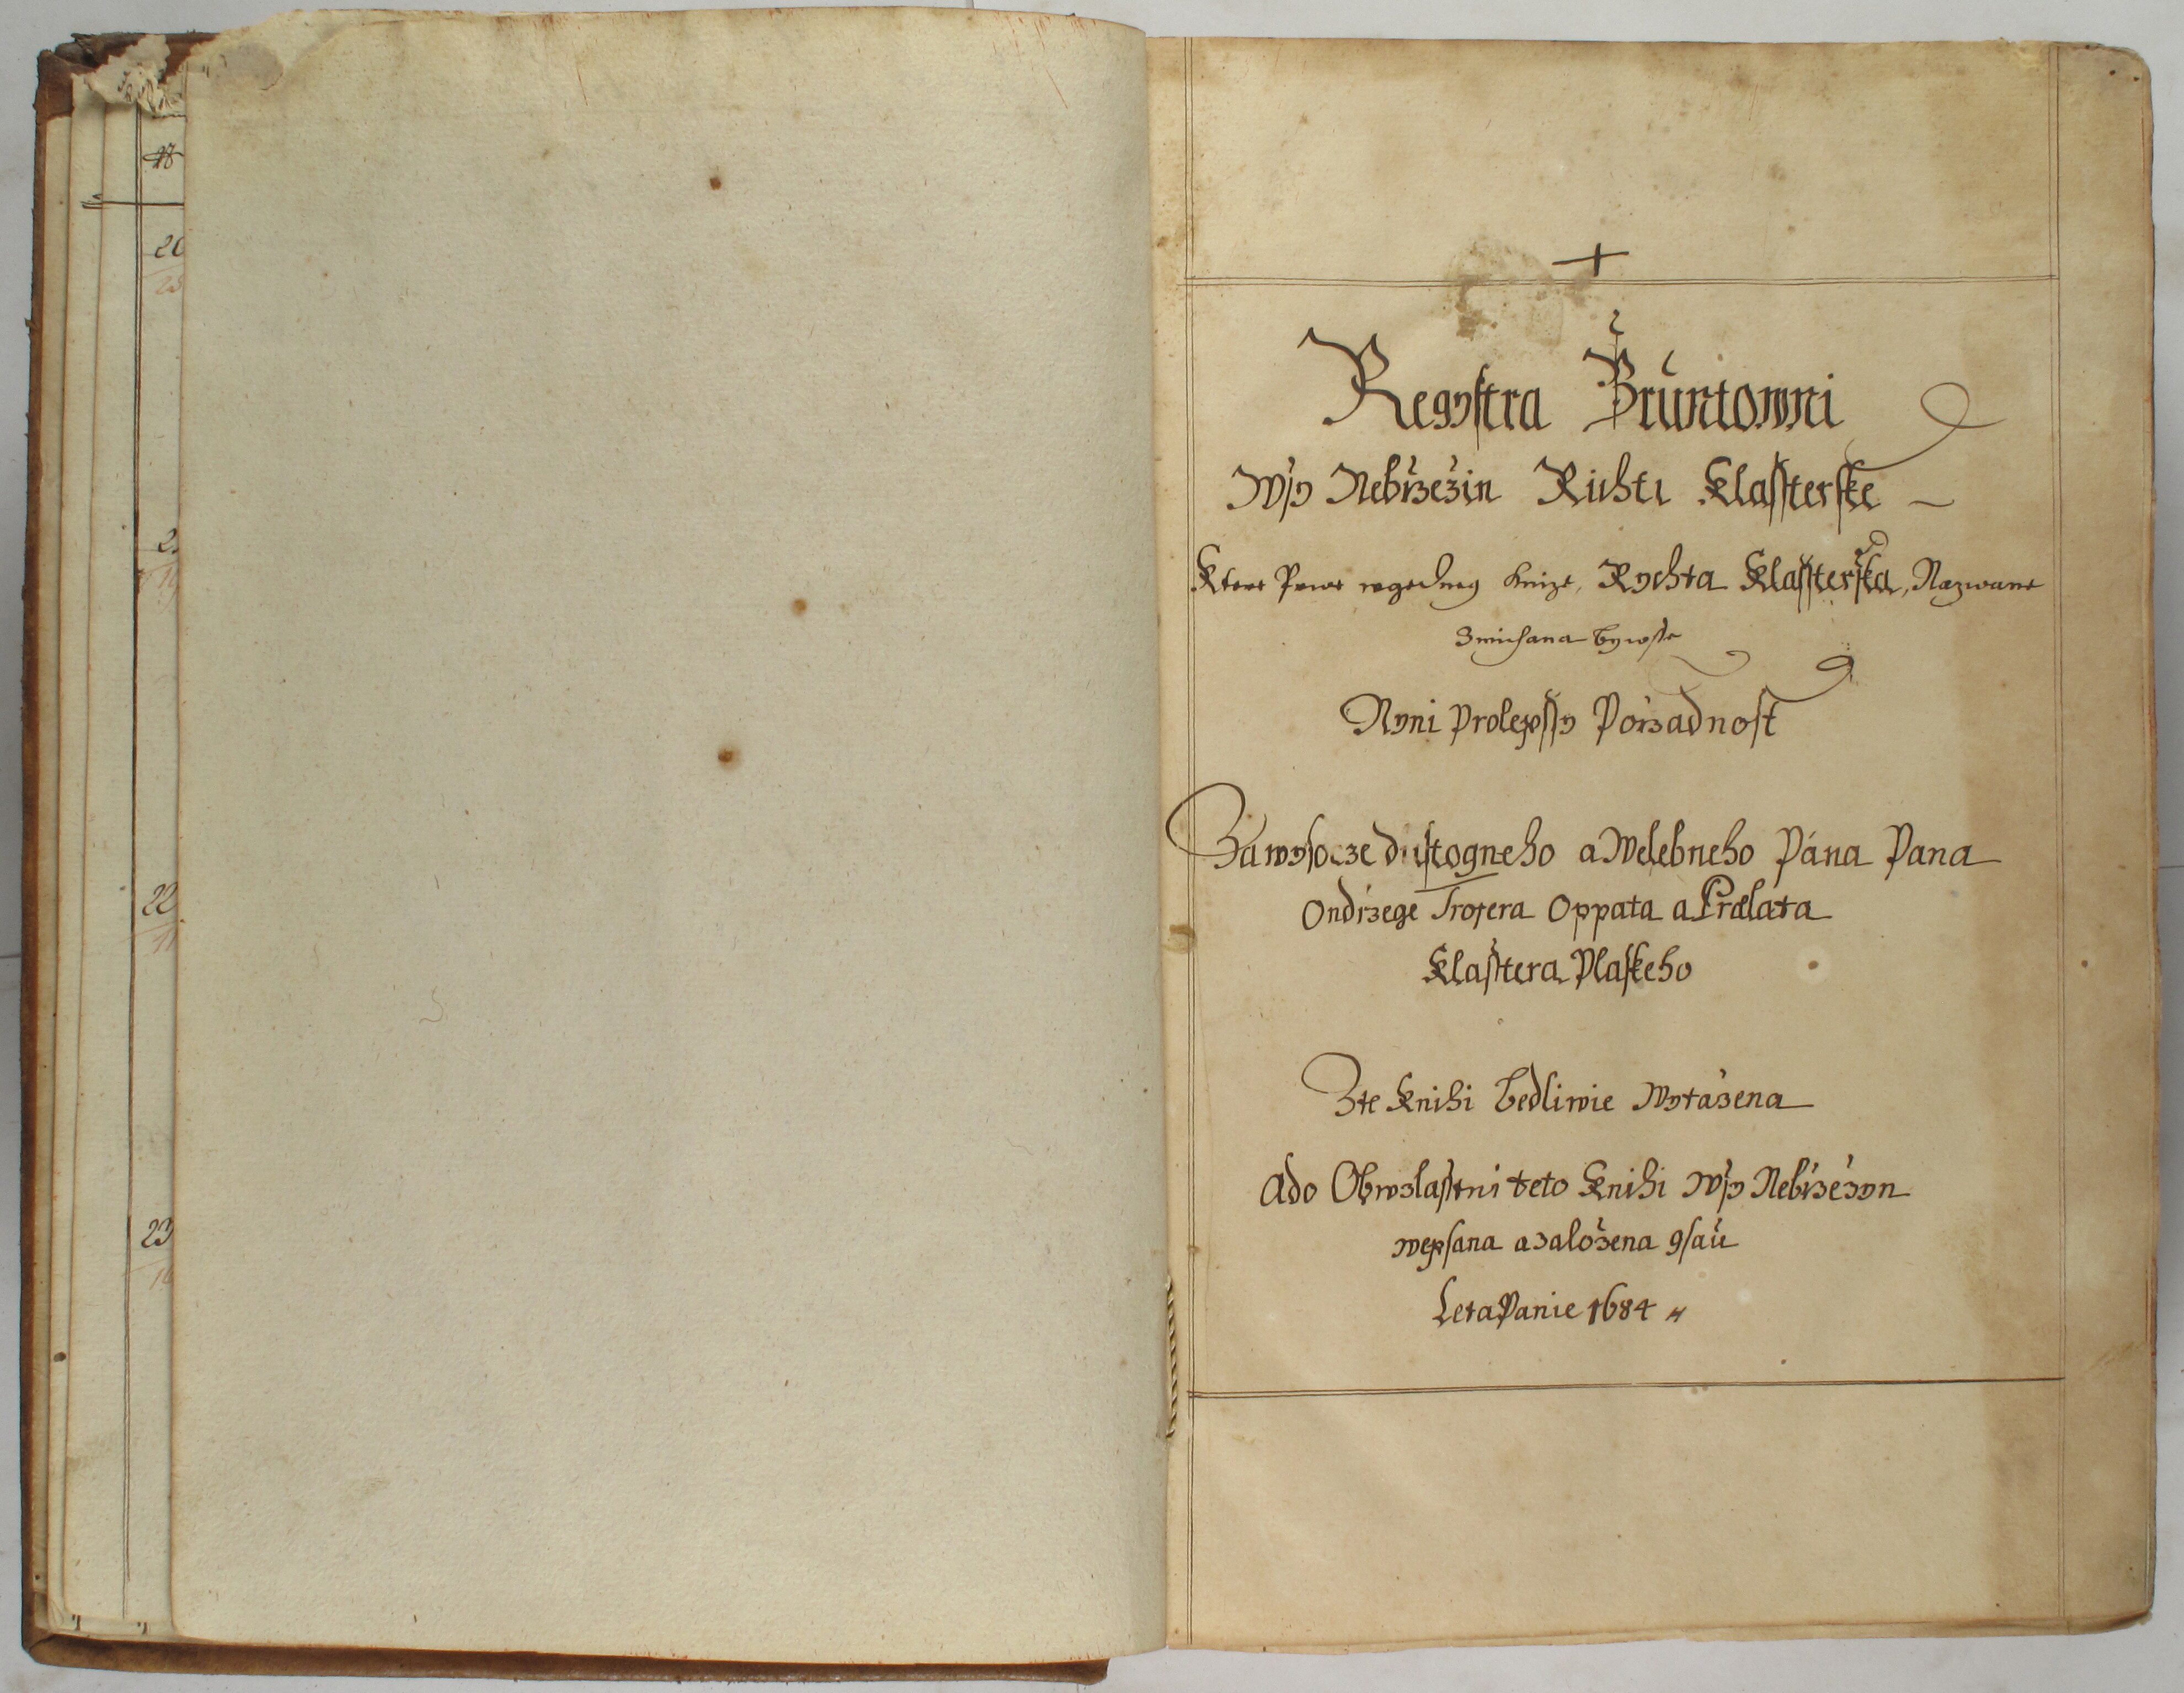 18
20
25
22
11
23
16
Regystra Gruntowni
Wsy Nebržežin Richti Klassterske
Ktere Prwe wgedneg knize, Rychta Klassterska, Nazwane
Zmichana bywsse
Nyni prolepssy Poržadnost
Za wysocze dustogneho a Welebneho Pána Pana
Ondržege Trojera Oppata a Prælata
Klasstera Plaskeho
Zte Knihi bedliwie Wytažena
Ado Obwzlasstni teto Knihi Wsy Nebržežyn
wepsana a založena gsaŭ
Leta Panie 1684